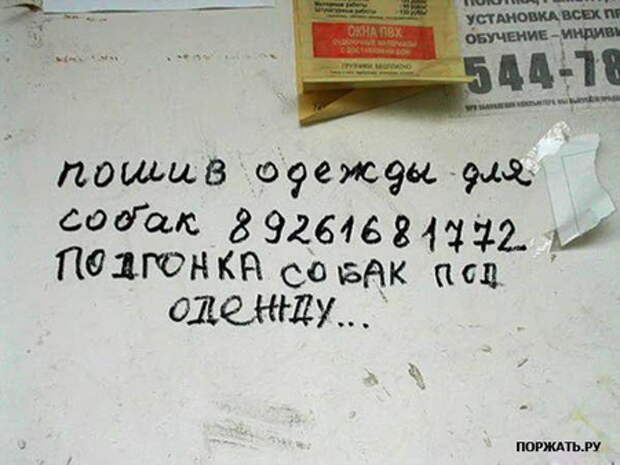 ОКНА ПВХ
ГРУЗЧИКИ БЕСПЛАТНО
УСТАНОВКА ВСЕХ ПР
ОБУЧЕНИЕ - ИНДИВИ
544-78
пошив одежды для
собак 89261681772
ПОДГОНКА СОБАК ПОД
ОДЕЖДУ...
ПОРЖАТЬ.РУ